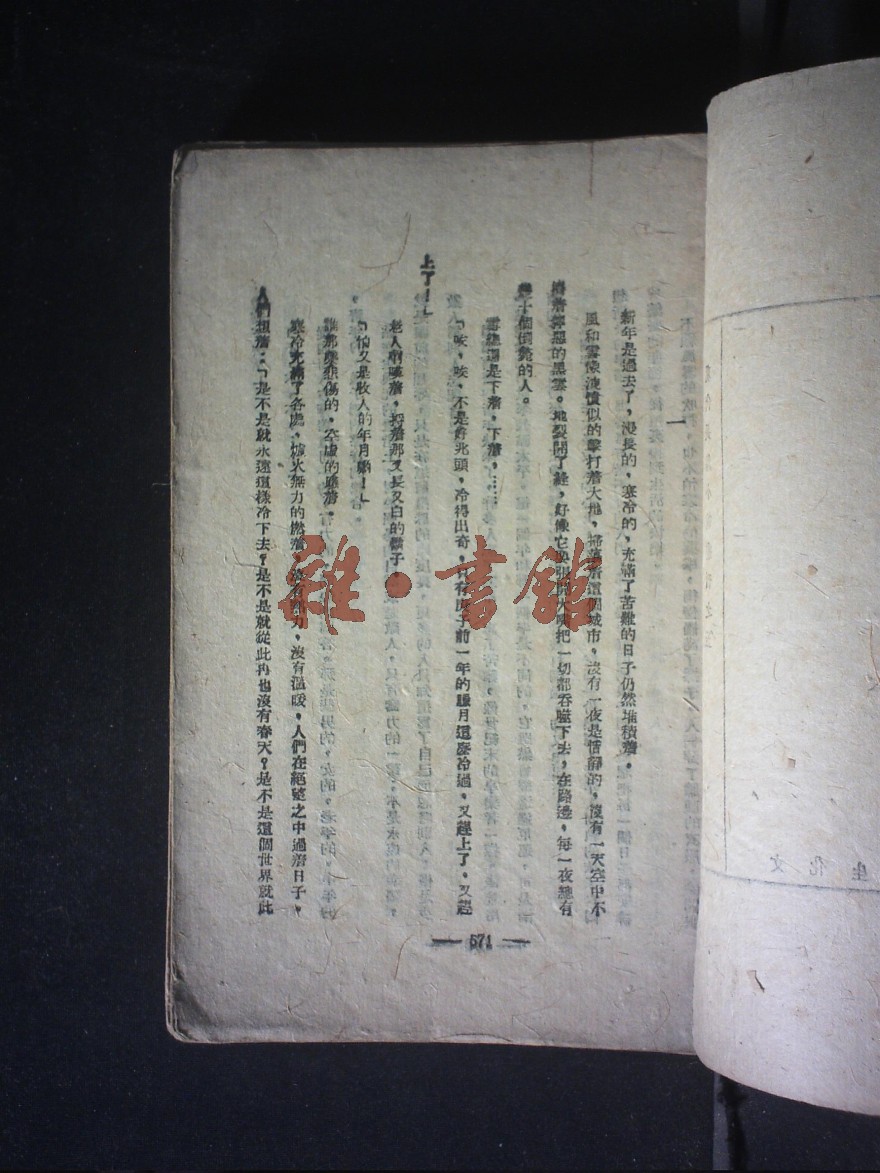 一
新年是過去了,漫長的,寒冷的,充滿了苦難的日子仍然堆積着。
風和雲像洩憤似的擊打着大地,掃蕩着這個城市,沒有一夜是恬靜的,沒有一天空中不
擠着獰惡的黑雲。地裂開了縫,好像它要張開大嘴把一切都吞噬下去,在路邊,每一夜總有
幾十個倒斃的人。
雪總還是下着,下着,……
「咳,咳,不是好兆頭,冷得出奇,只有庚子前一年的臘月這麼冷過,又趕上了,又趕
上了!」
老人啊嘆着,捋着那又長又白的鬍子
「怕又是收人的年月喲!」
誰都樂悲傷的,空虛的噓着。
寒冷充滿了各處,爐火無力的燃着,沒有熱力,沒有溫暖,人們在絕望之中過着日子,
人們想着:「是不是就永遠這樣冷下去?是不是就從此再也沒有春天?是不是這個世界就此
— 571 —
雜·書館
文化生